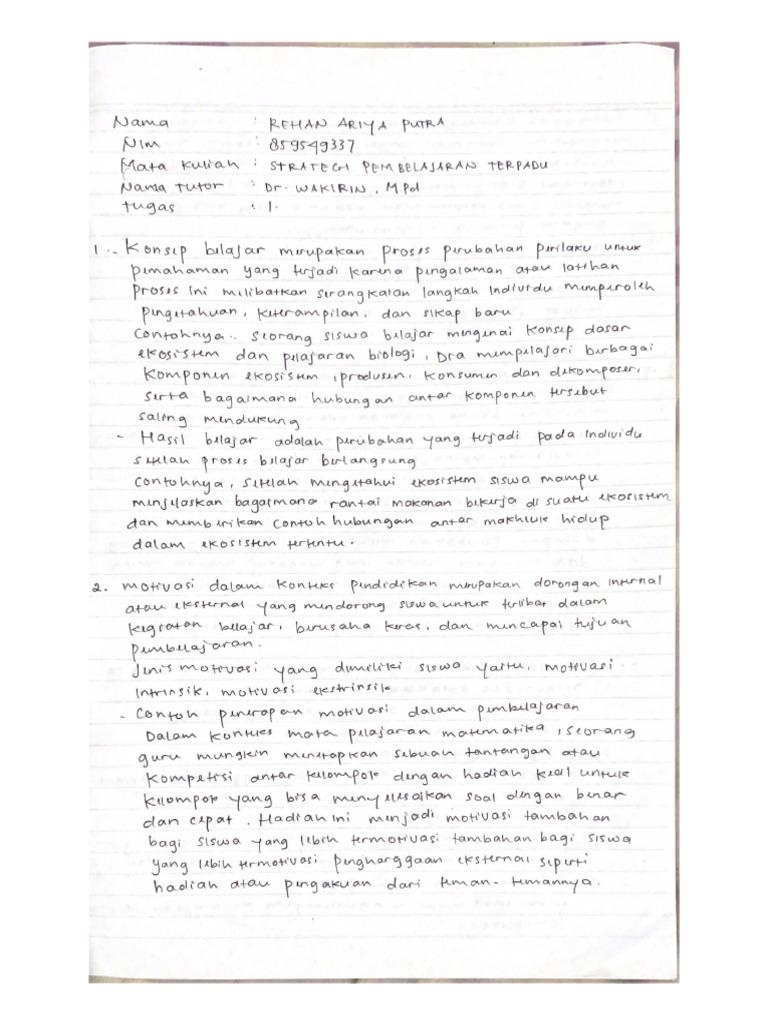 Nama : REHAN ARIYA PUTRA
Nim : 859549337
Mata Kuliah : STRATEGI PEMBELAJARAN TERPADU
Nama Tutor : Dr. WAKIRIN, M.Pd
Tugas : 1.
1. - Konsep belajar merupakan proses perubahan perilaku untuk
pemahaman yang terjadi karena pengalaman atau latihan
proses ini melibatkan serangkaian langkah individu memperoleh
pengetahuan, keterampilan, dan sikap baru.
Contohnya.. seorang siswa belajar mengenai konsep dasar
ekosistem dan pelajaran biologi, Dra mempelajari berbagai
komponen ekosistem, produsen, konsumen dan dekomposer,
serta bagaimana hubungan antar komponen tersebut
saling mendukung
- Hasil belajar adalah perubahan yang terjadi pada individu
setelah proses belajar berlangsung
Contohnya, setelah mengetahui ekosistem siswa mampu
menjelaskan bagaimana rantai makanan bekerja di suatu ekosistem
dan memberikan contoh hubungan antar makhluk hidup
dalam ekosistem tertentu.
2. motivasi dalam konteks pendidikan merupakan dorongan internal
atau eksternal yang mendorong siswa untuk terlibat dalam
kegiatan belajar, berusaha keras, dan mencapai tujuan
pembelajaran.
Jenis motivasi yang dimiliki siswa yaitu, motivasi
intrinsik, motivasi ekstrinsik
- Contoh penerapan motivasi dalam pembelajaran
Dalam konteks mata pelajaran matematika, seorang
guru mungkin menetapkan sebuah tantangan atau
kompetisi antar kelompok dengan hadiah kecil untuk
kelompok yang bisa menyelesaikan soal dengan benar
dan cepat. Hadiah ini menjadi motivasi tambahan
bagi siswa yang lebih termotivasi tambahan bagi siswa
yang lebih termotivasi pengharggaan eksternal seperti
hadiah atau pengakuan dari teman-temannya.